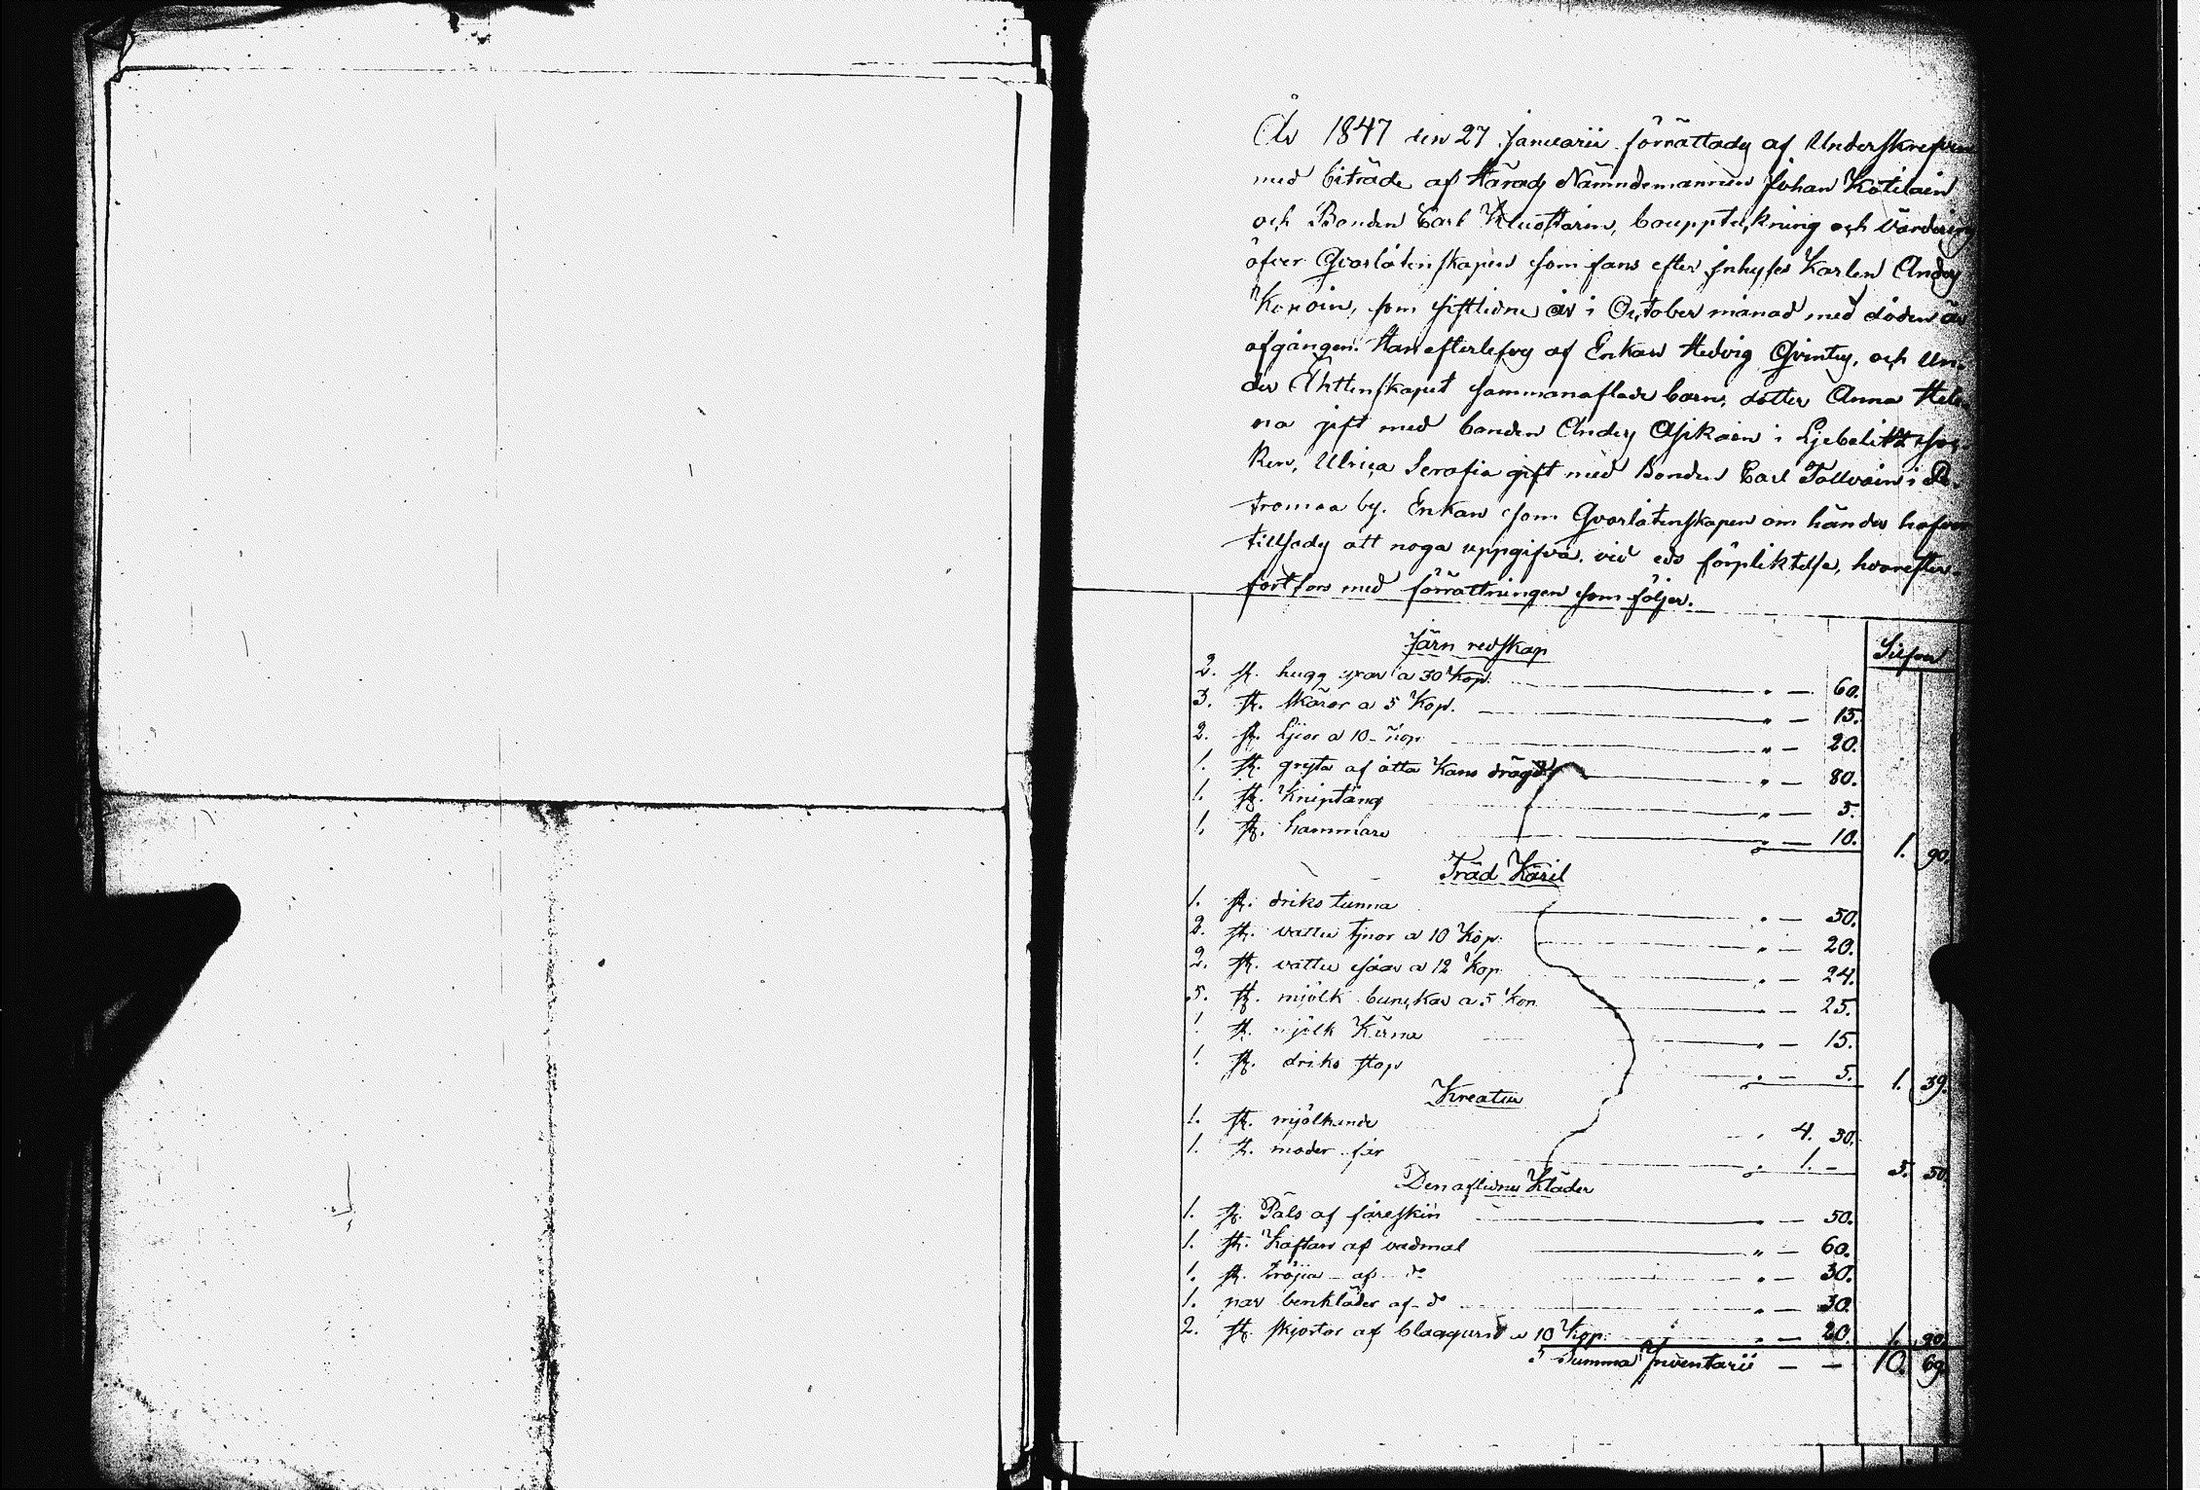 År 1847 den 27 Januarii förrättades af Underskrefven
med biträde af Härads Nämndemannen Johan Kötilain
och Bonden Carl, bouppteckning och värdering
öfver Qvarlåtenskapen som fans efter Inhyses Karlen Anders
som sistledne år i October månad med döden är
afgången. Han efterlefves af Enkan Hedvig Qvintus, och un-
der Ächtenskapet sammanaflade barn, dotter Anna Hele-
na gift med bonden Anders Asikain i Libelits soc-
ken, Ulrica Serafia gift med Bonden Carl Tallvain i
by. Enkan som Qvarlåtenskapen om händer hafver
tillsades att noga uppgifva, vid eds förpliktelse, hvarefter
fortfors med förrättningen som följer.
Järn redskap Silfver
2. st. hugg yxor a 30 Kop. " — 60.
3. st. skäror a 5 Kop. " — 15.
2. st. Ljear a 10 Kop " — 20.
1. st. gryta af åtta Kans drägd " — 80.
1. st. Kniptång " — 5.
1. st. hammare " — 10. 1. 90.
Träd Käril
1. st. driks tunna " — 50.
2. st. vattu tjnor a 10 Kop. " — 20.
2. st. vattu såar a 12 Kop " — 24.
5. st. mjölk bunckar a 5 Kop. " — 25.
1. st. mjölk Kärna " — 15.
1. st. driks stop " — 5. 1. 39.
Kreatur
1. st. mjölkande " 4. 50.
1. st. moder får " 1. — 5. 50.
Den aflidnes Kläder
1. st. Päls af fåreskin " — 50.
1. st. Kaftan af vadmal " — 60.
1. st. tröja af do " — 30.
1. par benkläder af do " — 30.
2. st. skjortor af blaggarn a 10 Kop. " — 20. 1. 90.
Summa Inventarii — — 10. 69.